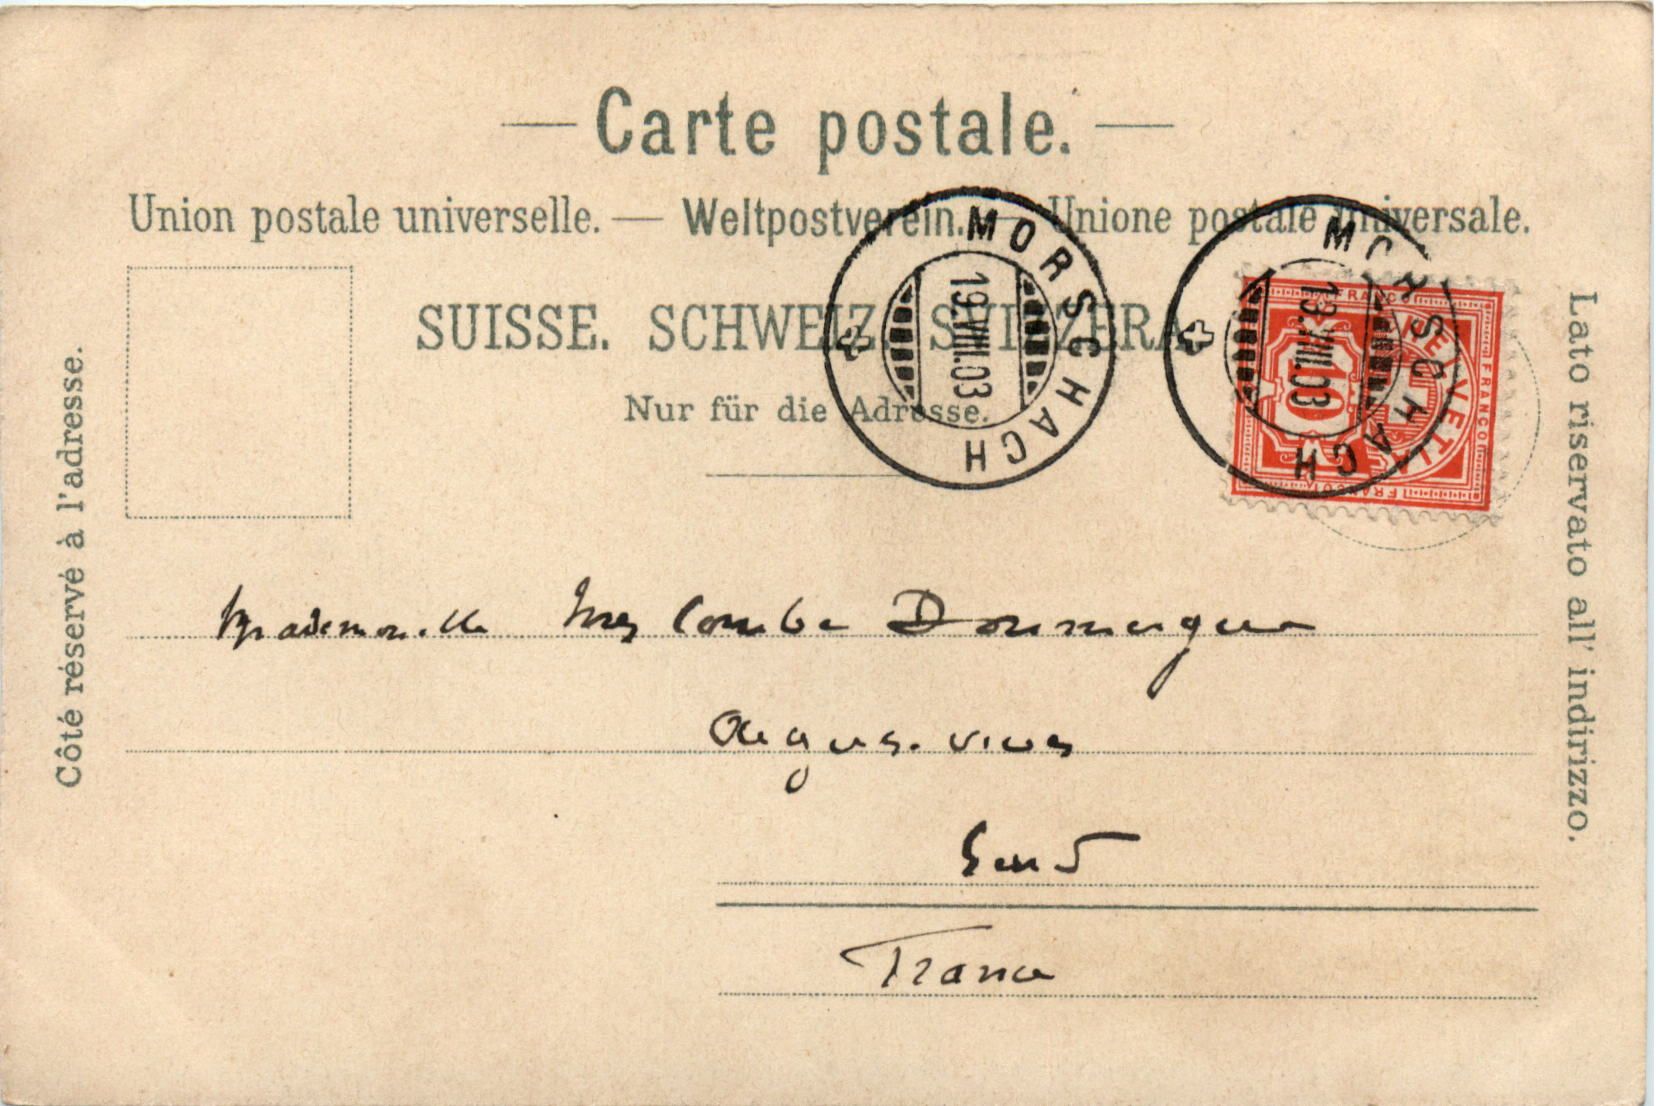 Carte postale.
Union postale universelle. — Weltpostverein. — Unione postale universale.
SUISSE. SCHWEIZ. SVIZZERA.
Nur für die Adresse.
Côté réservé à l'adresse.
Lato riservato all' indirizzo.
MORSCHACH
19.VIII.03
MORSCHACH
19.VIII.03
FRANCO
FRANCO
FRANCO
HELVETIA
10
Mademoiselle Combe Doumergue
Aigues-vives
Gard
France